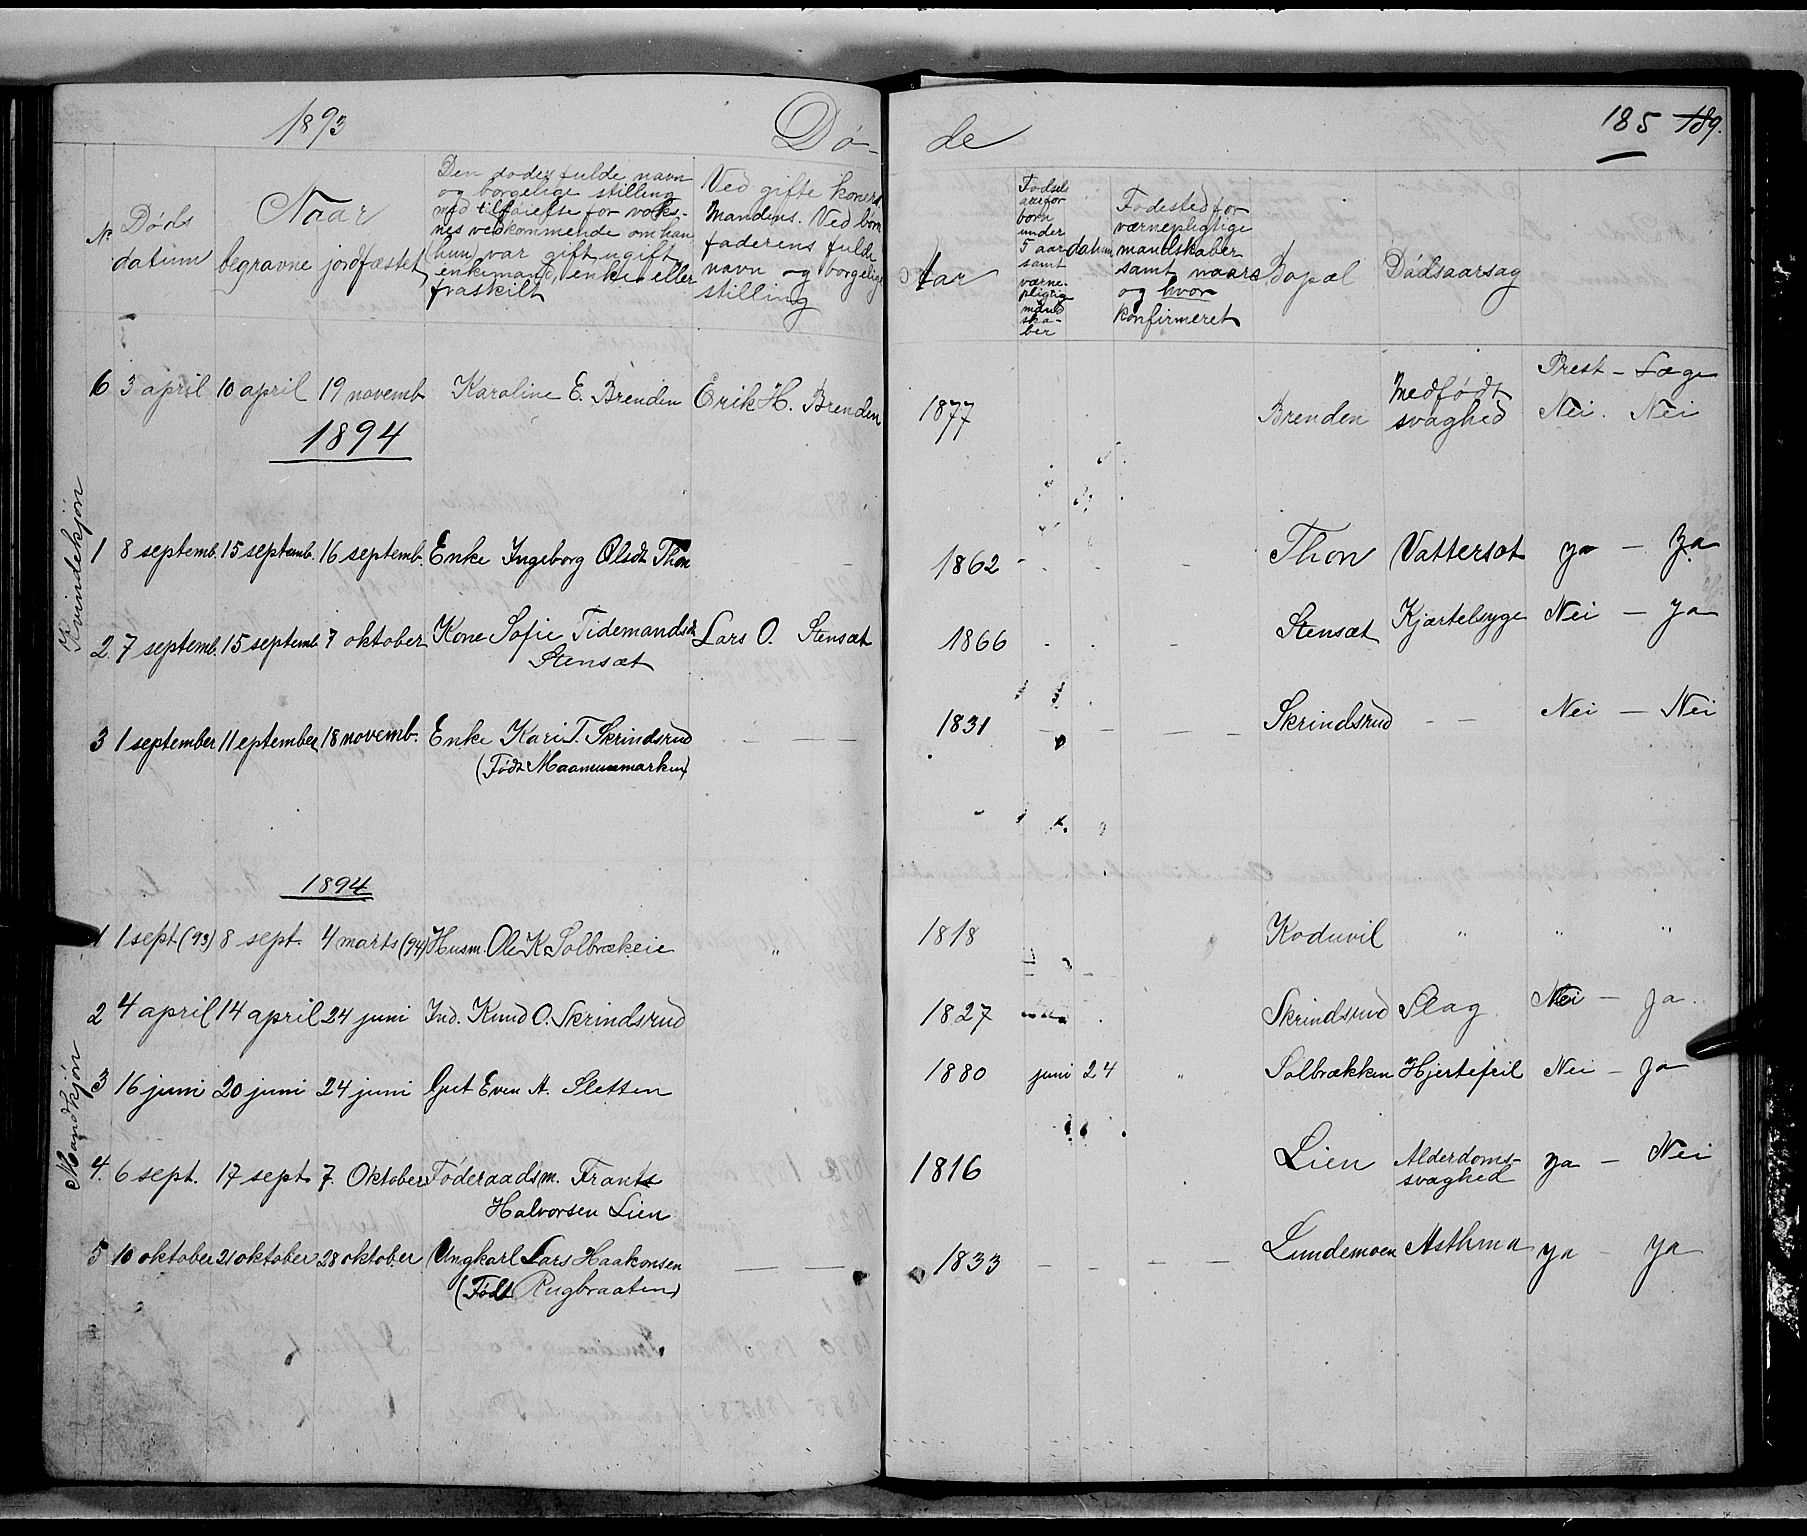 1893 Dø- de 185 189.
No.
Døds
datum
Naar
begravne jordfæstet
Den dødes fulde navn
og borgelige stilling
med tilføielse for voks-
nes vedkommende om han
(hun) var gift, ugift,
enkemand, enke eller
fraskilt
Ved gifte koner
Mandens. Ved børn
faderens fulde
navn og borgelige
stilling
Aar
Fødsels
aar for
børn
under
5 aar
samt
værne-
pligtige
mand
ska-
ber
datum
Fødested for
værnepligtige
mandskaber
samt naar
og hvor
konfirmeret
Bopæl
Dødsaarsag
Prest - Læge
6 3 april 10 april 19 novemb. Karoline E. Brenden Erik H. Brenden 1877 Brenden Medfødt svaghed Nei. Nei
1894
Kvindekjøn
1 8 septemb. 15 septemb. 16 septemb. Enke Ingeborg Olsdt Thon - - 1862 - - - - Thon Vattersot ja - Ja
2. 7 septemb. 15 septemb. 7 oktober Kone Sofie Tidemandsdt Lars O. Stensæt 1866 - - - Stensæt Kjærtelsyge Nei - Ja
Stensæt
3 1 september 11 eptember 18 novemb. Enke Kari T. Skrindsrud - - - 1831 - - - - Skrindsrud - - Nei - Nei
(Født Maanumsmarken)
1894
Mandkjøn
1 1 sept (93) 8 sept. 4 marts (94) Husm. Ole K. Solbrækeie " 1818 Koduvil " " "
2 4 april 14 april 24 juni Ind. Knud O. Skrindsrud 1827 Skrindsrud Slag Nei - ja.
3 16 juni 20 juni 24 juni Gut Even A. Sletten 1880 juni 24 " Solbrækken Hjertefeil Nei - Ja
4. 6 sept. 17 sept 7. Oktober Føderaadsm. Frants 1816 Lien Alderdoms- ja - Nei
Halvorsen Lien svaghed
5 10 oktober 21 oktober 28 oktober Ungkarl Lars Haakonsen - - 1833 - - - - Lundemoen Asthma ja - ja
(Født Rugbraaten)